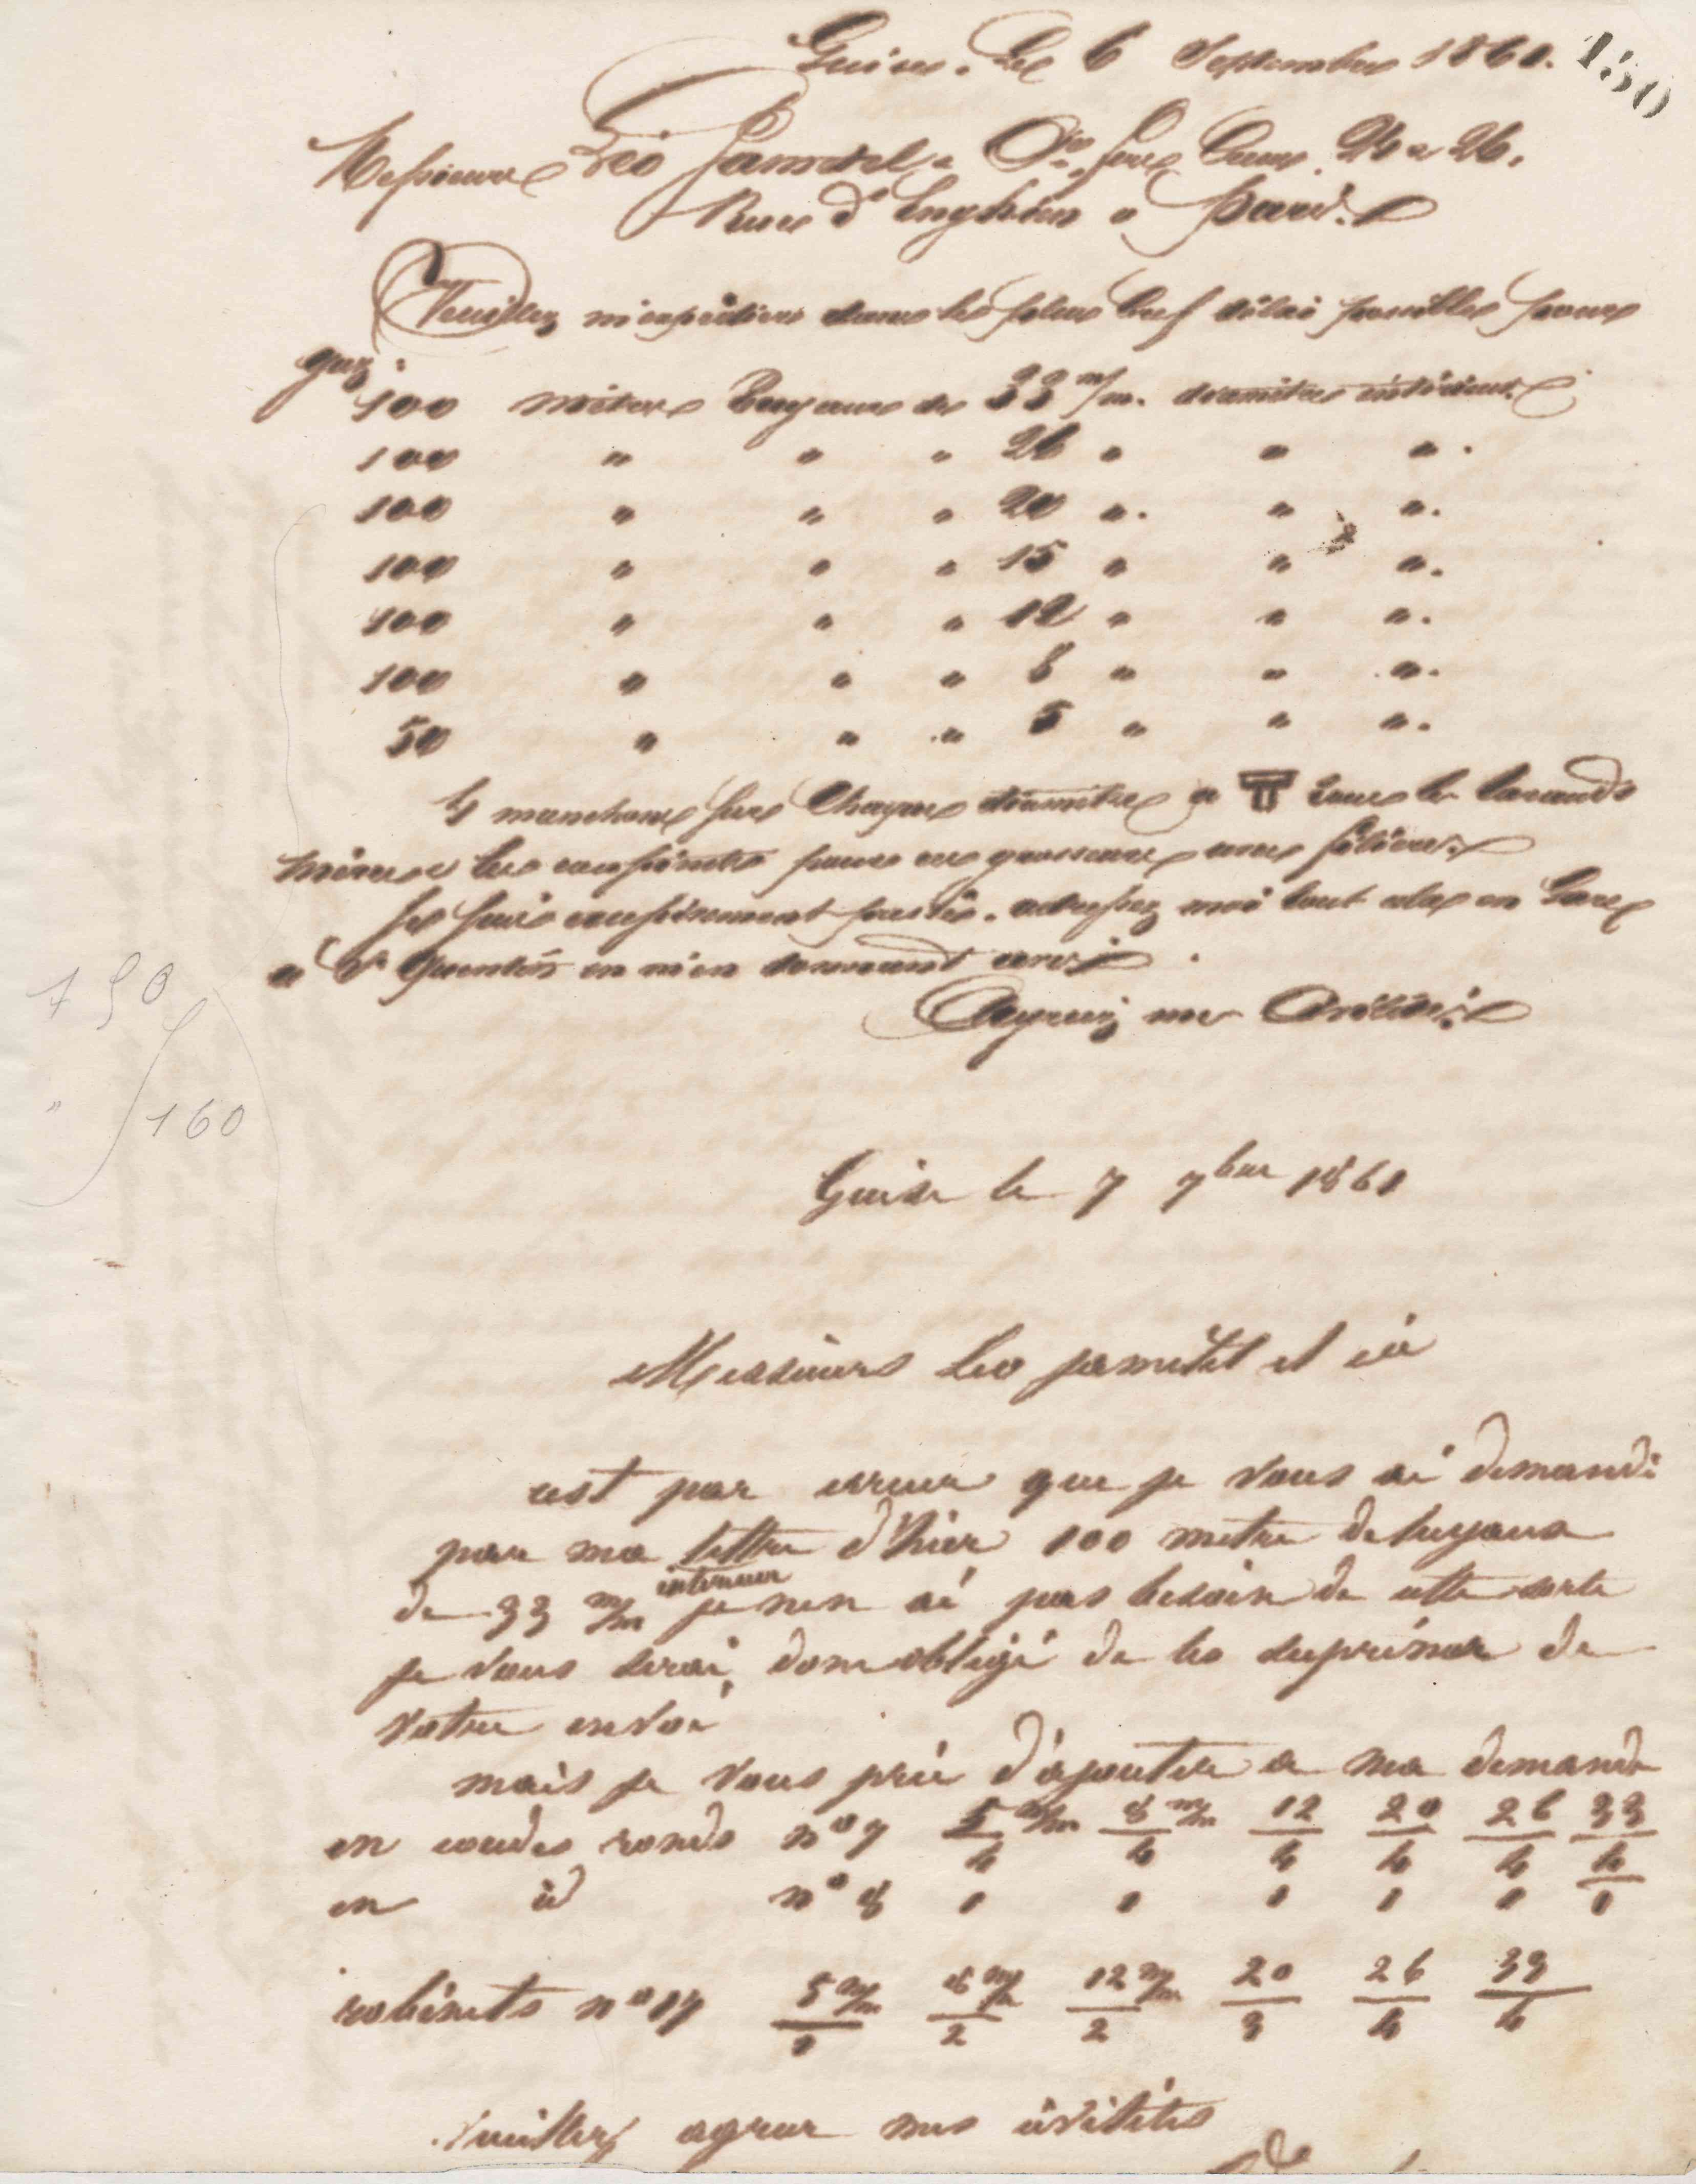 150
Guise. Le 6 Septembre 1861.
Messieurs Léo Jamétel & Cie 24 & 26.
Rue d'Enghien a Paris.
Veuillez m'expédier dans le plus bref délai possible pour
gaz.
100 mètres Tuyaux de 33 m/m. diamètre intérieur.
100 " " " 26 " " ".
100 " " " 20 ". " ".
100 " " " 15 " " ".
100 " " " 12 " " ".
100 " " " 8 " " ".
50 " " " 5 " " ".
4 manchons sur chaque diamètre
pour ces grosseurs
Je suis excessivement pressé. adressez moi tout cela en Gare
a St Quentin en m'en donnant avis
Agréez mes Civilités.
750
" 160
Guise le 7 7bre 1861
Messieurs Leo jamétel et cie
cest par erreur que je vous ai demandé
par ma lettre d'hier 100 metre de tuyaux
de 33 m/m interieur je nen ai pas besoin de cette sorte
je vous serai donc obligé de les suprimer de
votre envoi
mais je vous prie d'ajouter a ma demande
en coudes ronds n° 7 5 m/m/4 8 m/m/4 12/4 20/4 26/4 33/4
en id n° 8 1 1 1 1 1 1
robinets n° 17 5 m/m/1 8 m/m/2 12 m/m/2 20/3 26/4 33/4
Veuillez agreer mes civilités